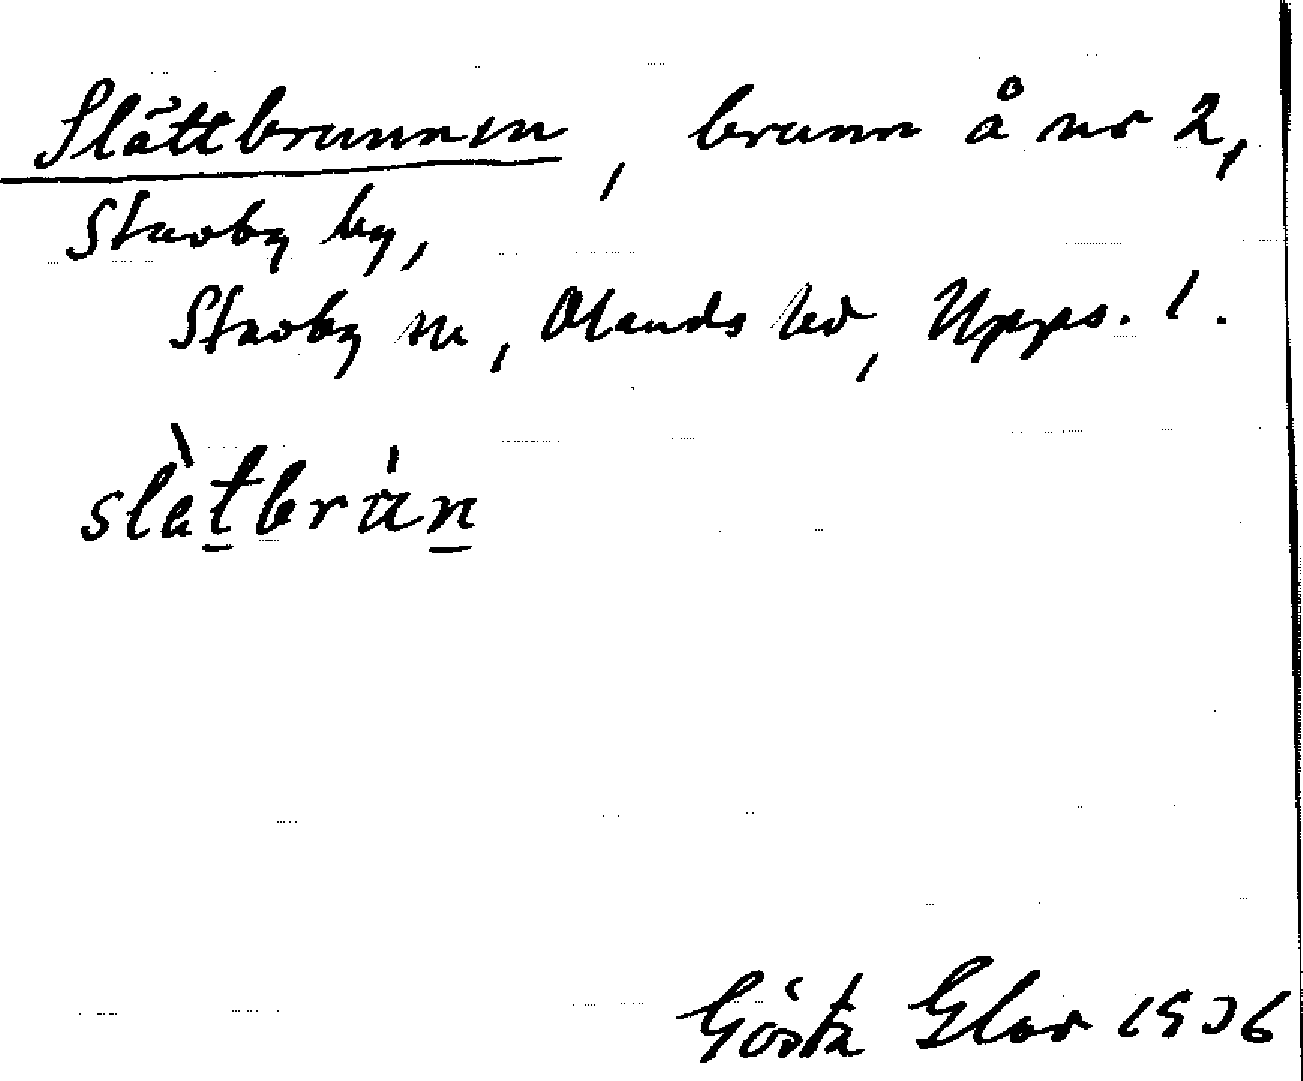 Slättbrunnen, brunn å nr 2,
Stavby by,
Stavby sn, Olands hd, Upps. l.
slètbrún
Gösta 1936